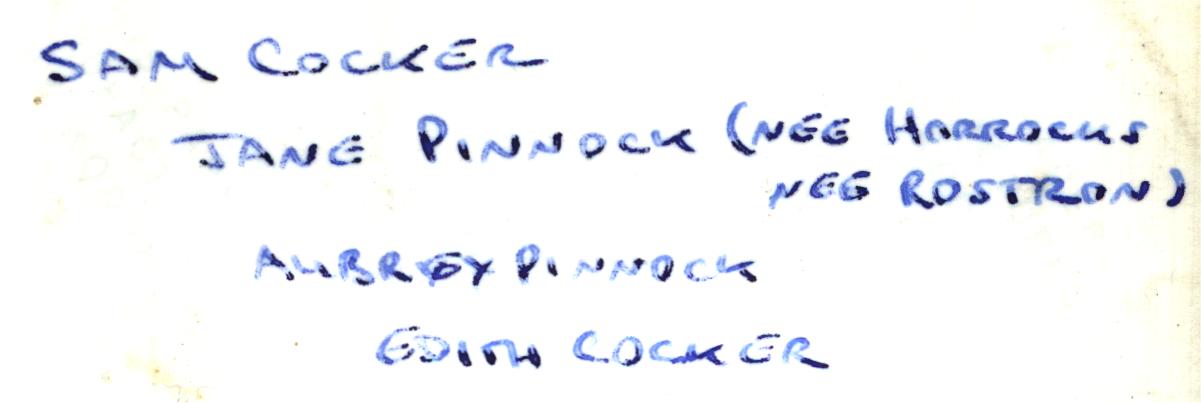 SAM COCKER
JANE PINNOCK (NEE HORROCKS
NEE ROSTRON)
AUBREY PINNOCK
EDITH COCKER